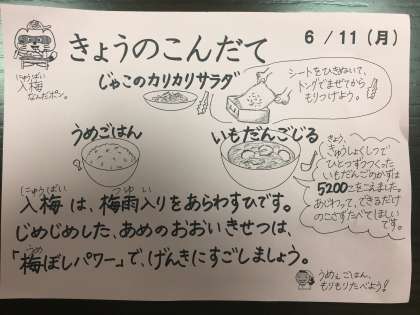 きょうのこんだて
6/11(月)
にゅうばい
入梅
なんだポン。
じゃこのカリカリサラダ
シートをひきぬいて、
トングでまぜてから
もりつけよう。
うめごはん
いもだんごじる
きょう、
きゅうしょくしつで
ひとつずつつくった
いもだんごのかずは
5200こをこえました。
あじわって、できるだけ
のこさずたべてほしい
です。
にゅうばい つゆい
入梅は、梅雨入りをあらわすひです。
じめじめした、あめのおおいきせつは、
うめ
「梅ぼしパワー」で、げんきにすごしましょう。
うめぇごはん、
もりもりたべよう!